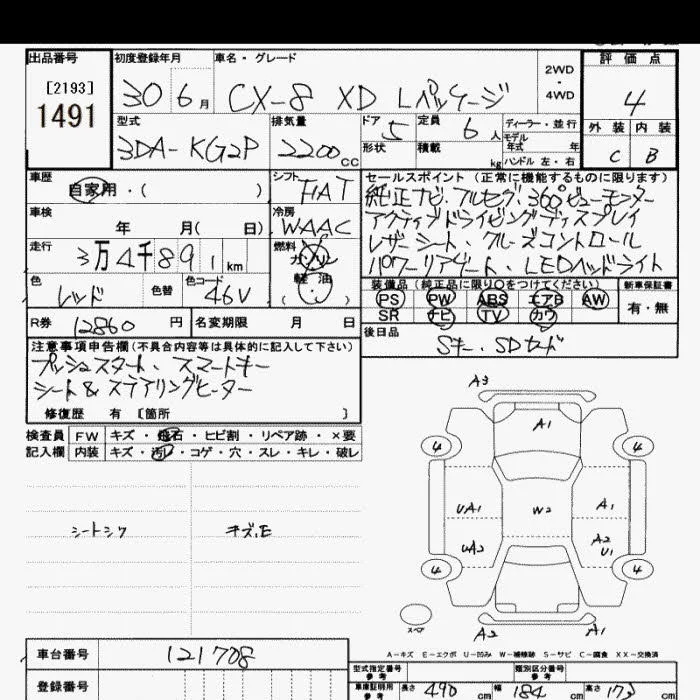 出品番号 初度登録年月 車名・グレード 2WD・4WD 評価点
[2193]
1491 30 6月 CX-8 XD Lパッケージ 4
型式 排気量 ドア 定員 ディーラー・並行 外装 内装
3DA-KG2P 2200cc 5 6人 モデル年式 年 C B
形状 積載 kg ハンドル 左・右
車歴 シフト セールスポイント (正常に機能するものに限ります)
自家用・( ) FAT 純正ナビ、フルセグ、360°ビューモニター
車検 冷房 アクティブドライビングディスプレイ
年 月( 日) WAAC レザーシート、クルーズコントロール
走行 燃料 パワーリアゲート、LEDヘッドライト
3万4千891km ガソリン
色 色替 色コード 軽油 装備品 (純正品に限り○をつけてください) 新車保証書
レッド 46V PS PW ABS エアB AW 有・無
SR ナビ TV カワ
R券 12860円 名変期限 月 日 後日品
Sキー、SDカード
注意事項申告欄 (不具合内容等は具体的に記入して下さい)
プッシュスタート、スマートキー
シート&ステアリングヒーター
修復歴 有 [箇所 ]
検査員 FW キズ・飛石・ヒビ割・リペア跡・×要
記入欄 内装 キズ・汚れ・コゲ・穴・スレ・キレ・破レ
シートシワ キズ、E
A3
A1
4 4
UA1 W2 A1
UA2 A2
U1
4 4
スペア
A2 A1
A-キズ E-エクボ U-凹み W-補修跡 S-サビ C-腐食 XX-交換済
車台番号 121708
型式指定番号 参考 類別区分番号 参考
登録番号 車庫証明用 参考 長さ 490cm 幅 184cm 高さ 173cm